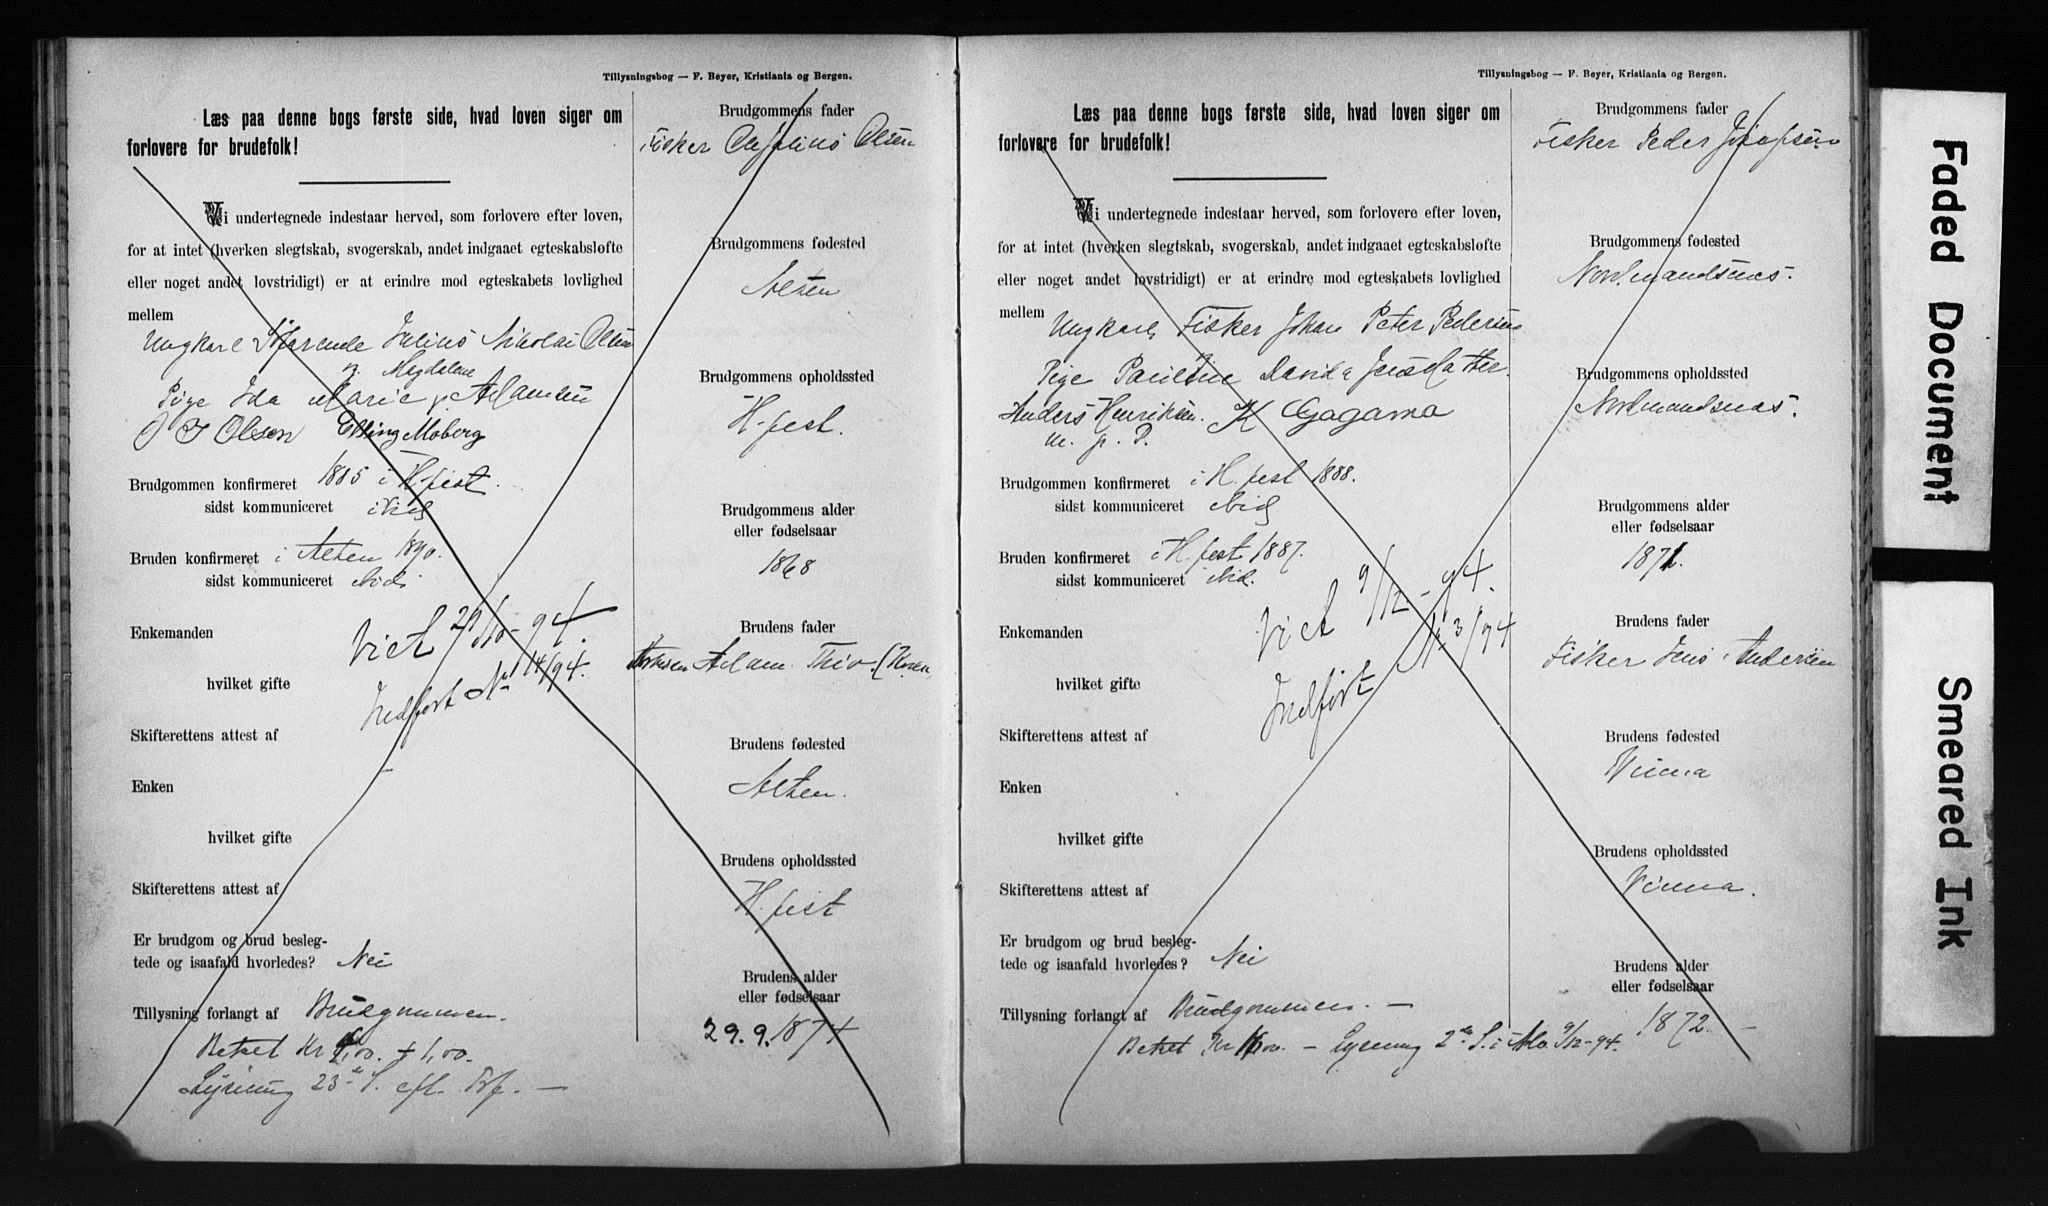 Tillysningsbog — F. Beyer, Kristiania og Bergen.
Læs paa denne bogs første side, hvad loven siger om
forlovere for brudefolk!
Vi undertegnede indestaar herved, som forlovere efter loven,
for at intet (hverken slegtskab, svogerskab, andet indgaaet egteskabsløfte
eller noget andet lovstridigt) er at erindre mod egteskabets lovlighed
mellem
Ungkarl Julius Nikolai Olsen
Magdalene
Pige Ida Marie Adamsen
O J Olsen Elling Moberg
Brudgommen konfirmeret 1885 i H.fest.
sidst kommuniceret ibid
Bruden konfirmeret i Alten 1890.
sidst kommuniceret ibid.
Enkemanden
Viet 29/10-94.
hvilket gifte
Indført No 14/94.
Skifterettens attest af
Enken
hvilket gifte
Skifterettens attest af
Er brudgom og brud besleg-
tede og isaafald hvorledes? Nei
Tillysning forlangt af Brudgommen.
Betalt Kr 4,00 + 1,00.
Lysning 23de S. eft. Trf. —
Brudgommens fader
Fisker Ole Julius Olsen
Brudgommens fødested
Alten
Brudgommens opholdssted
H.fest.
Brudgommens alder
eller fødselsaar
1868
Brudens fader
Adam Thiv (Kven
Brudens fødested
Alten.
Brudens opholdssted
H.fest
Brudens alder
eller fødselsaar
29.9.1874
Tillysningsbog — F. Beyer, Kristiania og Bergen.
Læs paa denne bogs første side, hvad loven siger om
forlovere for brudefolk!
Vi undertegnede indestaar herved, som forlovere efter loven,
for at intet (hverken slegtskab, svogerskab, andet indgaaet egteskabsløfte
eller noget andet lovstridigt) er at erindre mod egteskabets lovlighed
mellem
Ungkarl, Fisker Johan Peter Pedersen
Pige Pauline Davida Jensdatter.
Anders Henriksen. K Gagama
m. p. P.
Brudgommen konfirmeret i H.fest 1888.
sidst kommuniceret ibid
Bruden konfirmeret i H.fest 1887.
sidst kommuniceret ibid.
Enkemanden
Viet 9/12-94.
hvilket gifte
Indført No 3/94
Skifterettens attest af
Enken
hvilket gifte
Skifterettens attest af
Er brudgom og brud besleg-
tede og isaafald hvorledes? Nei
Tillysning forlangt af Brudgommen. —
Betalt Kr 4,00. — Lysning 2de S. i Adv. 9/12-94.
Brudgommens fader
Fisker Peder Josefsen
Brudgommens fødested
Nordmandsnes.
Brudgommens opholdssted
Nordmandsnes.
Brudgommens alder
eller fødselsaar
1871.
Brudens fader
Fisker Jens Andersen
Brudens fødested
Vinna
Brudens opholdssted
Vinna.
Brudens alder
eller fødselsaar
1872. —
Faded Document
Smeared Ink